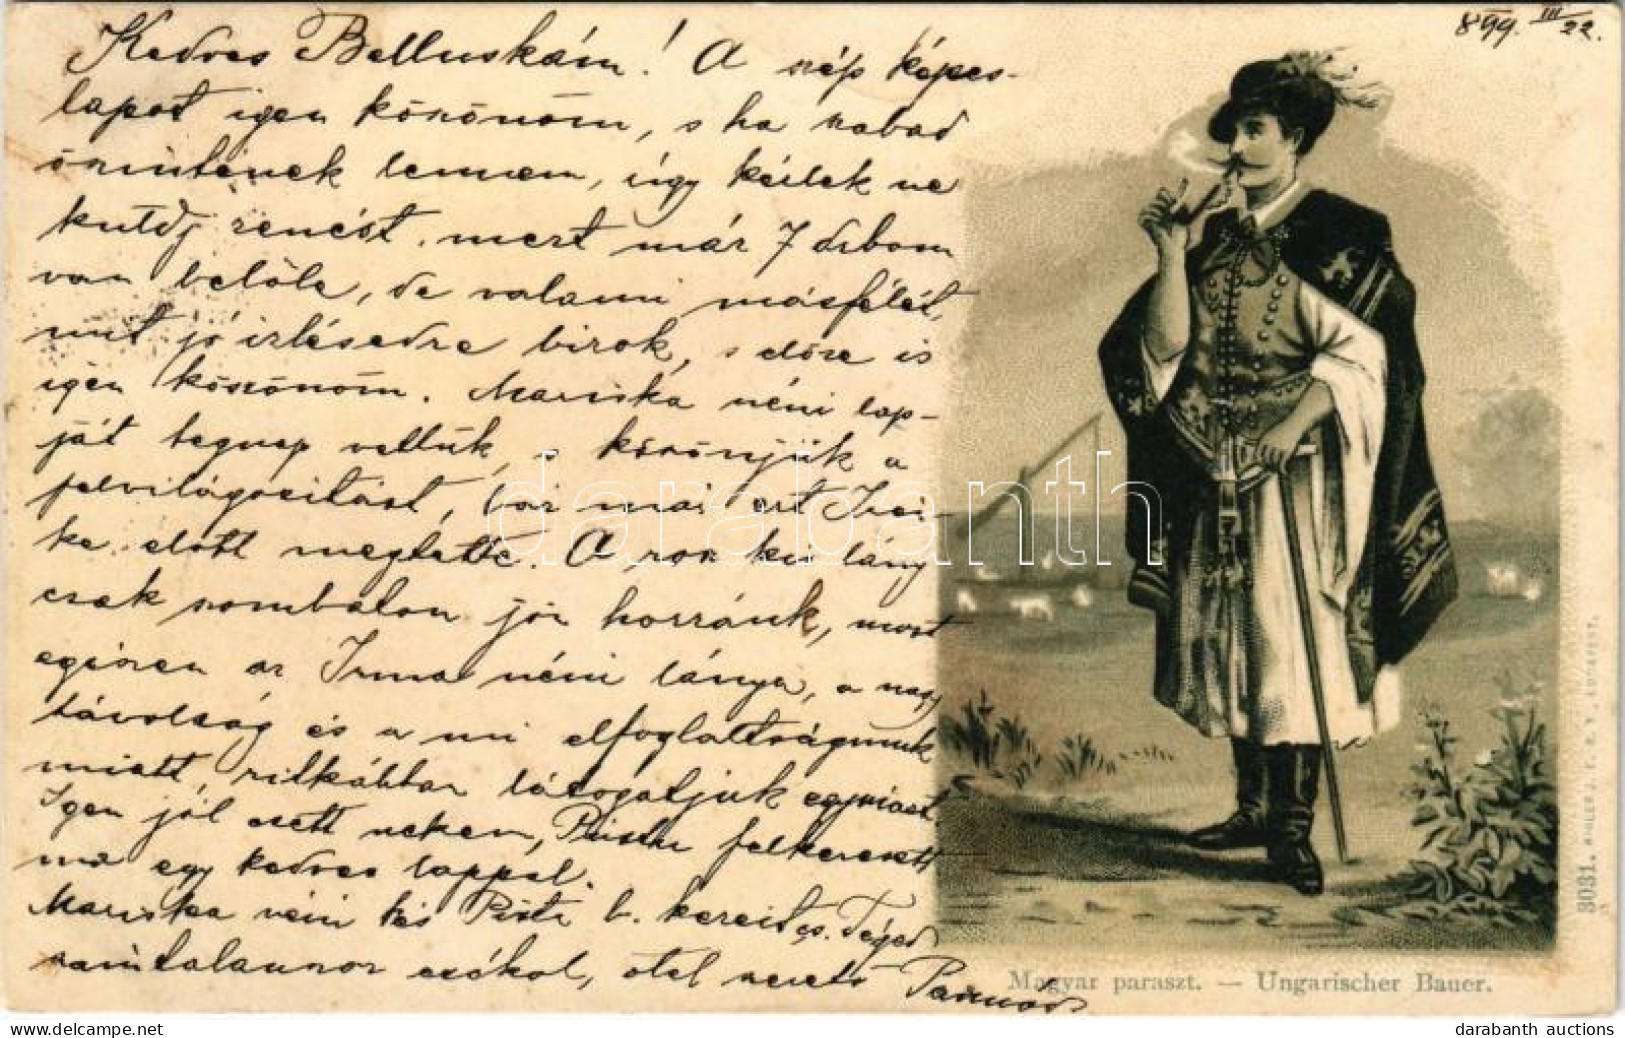 899. III/22.
Kedves Belluskám! A szép képes-
lapot igen köszönöm, s ha szabad
őszintének lennem, úgy kérlek ne
küldj zenést, mert már 7 drbom
van belőle, de valami másfélét,
mit jó izlésedre bizok, s előre is
igen köszönöm. Mariska néni lap-
ját tegnap vettük, s köszönjük a
felvilágositást, bár mai ezt Irci-
ke előtt megtette. A sok kis lány
csak szombaton jön hozzánk, most
egészen az Irma néni lánya, a nagy
távolság és a mi elfoglaltságunk
miatt, ritkábban látogatjuk egymást
Igen jól esett nekem, Piista felkeresett
ma egy kedves lappal.
Mariska néni és Pisti b. kezeit cs. Téged
számtalanszor csókol, ölel szerető
darabanth
Magyar paraszt. — Ungarischer Bauer.
3031.
darabanth auctions
View this item on www.delcampe.net